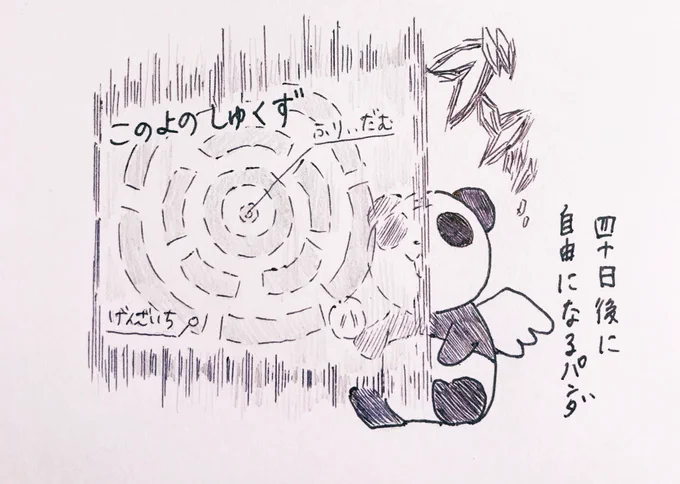 このよのしゅくず
ふりぃだむ
げんざいち
四十日後に
自由になるパンダ